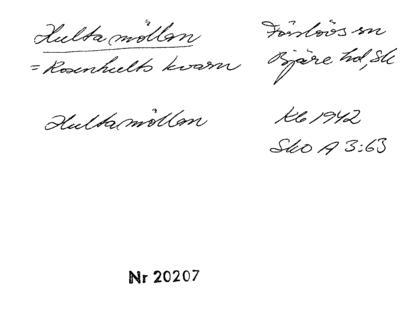 Hultamöllan
= Rosenhults kvarn
Förslövs sn
Bjäre hd, Sk
Hultamöllan
Kb 1942
Sko A 3:63
Nr 20207